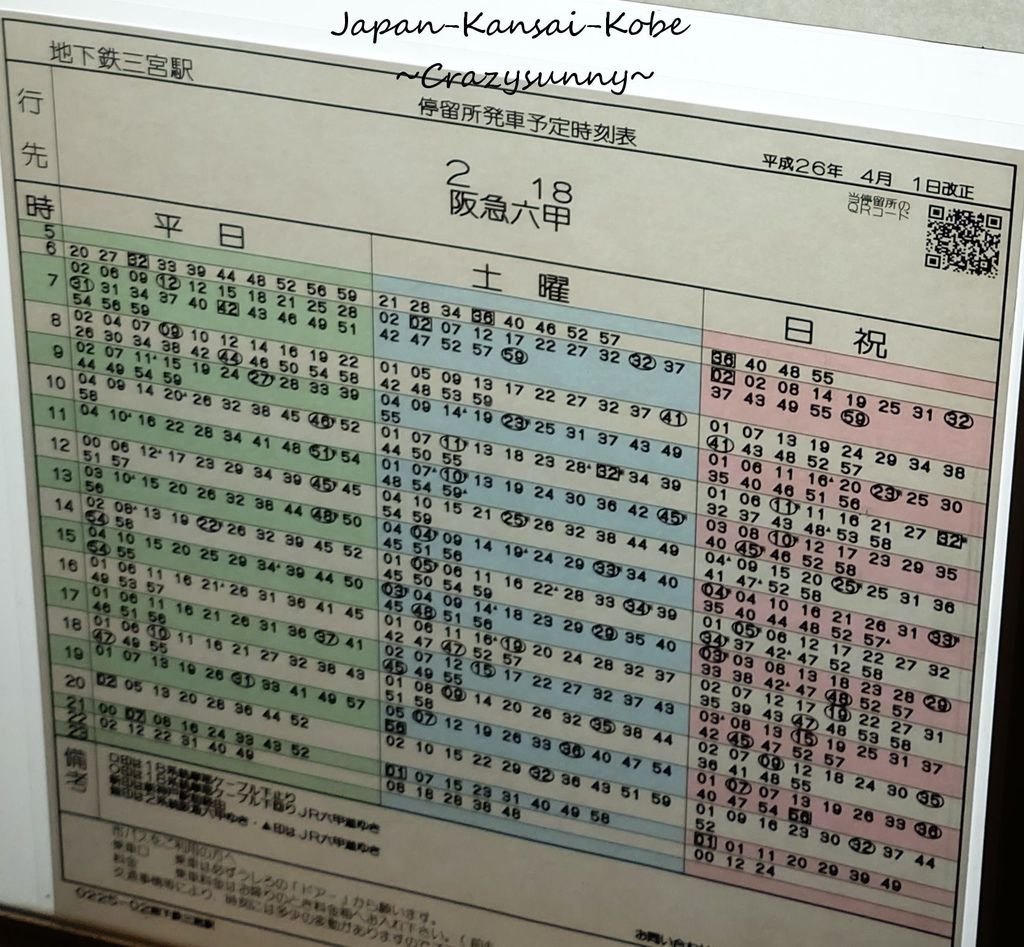 Japan-Kansai-Kobe
~Crazysunny~
地下鉄三宮駅
停留所発車予定時刻表
平成26年 4月 1日改正
行先
2 18
阪急六甲
当停留所の
QRコード
時
平日
土曜
日祝
5
6
20 27 32 33 39 44 48 52 56 59
21 28 34 36 40 46 52 57
36 40 48 55
7
02 06 09 12 12 15 18 21 25 28
31 31 34 37 40 42 43 46 49 51
54 56 59
02 02 07 12 17 22 27 32 32 37
42 47 52 57 59
02 02 08 14 19 25 31 32
37 43 49 55 59
8
02 04 07 09 10 12 14 16 19 22
26 30 34 38 42 44 46 50 54 58
01 05 09 13 17 22 27 32 37 41
42 48 53 59
01 07 13 19 24 29 34 38
41 43 48 52 57
9
02 07 11▲ 15 19 24 27 28 33 39
44 49 54 59
04 09 14▲ 19 23 25 31 37 43 49
55
01 06 11 16▲ 20 23 25 30
35 40 46 51 56
10
04 09 14 20▲ 26 32 38 45 46 52
58
01 07 11 13 18 23 28▲ 32 34 39
44 50 55
01 06 11 11 16 21 27 32
32 37 43 48▲ 53 58
11
04 10▲ 16 22 28 34 41 48 51 54
01 07▲ 10 13 19 24 30 36 42 45
48 54 59▲
03 08 10 12 17 23 29 35
40 45 46 52 58
12
00 06 12▲ 17 23 29 34 39 45 45
51 57
04 10 15 21 25 26 32 38 44 49
54 59
04▲ 09 15 20 25 25 31 36
41 47▲ 52 58
13
03 10▲ 15 20 26 32 38 44 48 50
56
04 04 09 14 19▲ 24 29 33 34 40
45 51 56
04 04 10 16 21 26 31 33
35 40 44 48 52 57▲
14
02 08▲ 13 19 22 26 32 39 45 52
54 58
01 05 06 11 16 22▲ 28 33 34 39
45 50 54 59
01 05 06 12 17 22 27 32
34 37 42▲ 47 52 58
15
04 10 15 20 25 29 34▲ 39 44 50
54 55
03 04 09 14▲ 18 23 29 29 35 40
45 48 51 56
03 03 08 13 18 23 28 29
33 38 42▲ 47 48 52 57
16
01 06 11 16 21▲ 26 31 36 41 45
49 53 57
01 06 11 16▲ 19 20 24 28 32 37
42 47 47 52 57
02 07 12 17 19 22 27 31
35 39 43 47 48 53 58
17
01 06 11 16 21 26 31 36 37 41
46 51 56
02 07 12 15 17 22 27 32 37 43
45 49 55
03▲ 08 13 15 19 25 31 37
42 45 47 52 57
18
01 06 10 11 16 21 27 32 38 43
47 49 55
01 08 09 14 20 26 32 35 38 44
51 58
02 07 09 12 18 24 30 35
36 41 48 55
19
01 07 13 19 26 31 33 41 49 57
05 07 12 19 26 33 36 40 47 54
56
01 07 07 13 19 26 33 36
40 47 54 56
20
02 05 13 20 28 36 44 52
02 10 15 22 29 32 36 43 51 59
01 09 16 23 30 32 37 44
52
21
00 07 08 16 24 33 43 52
01 07 15 23 31 40 49 58
01 01 11 20 29 39 49
22
02 12 22 31 40 49
08 18 28 38 48
00 12 24
23
備考
市バスをご利用の方へ
乗車口 乗車は必ずうしろの「ドアー」から願います。
料金 乗車料金はお降りのとき料金箱へお入れ下さい。
交通事情等により、時刻には多少の変動があります
0225-02地下鉄三宮駅
お問い合わせ